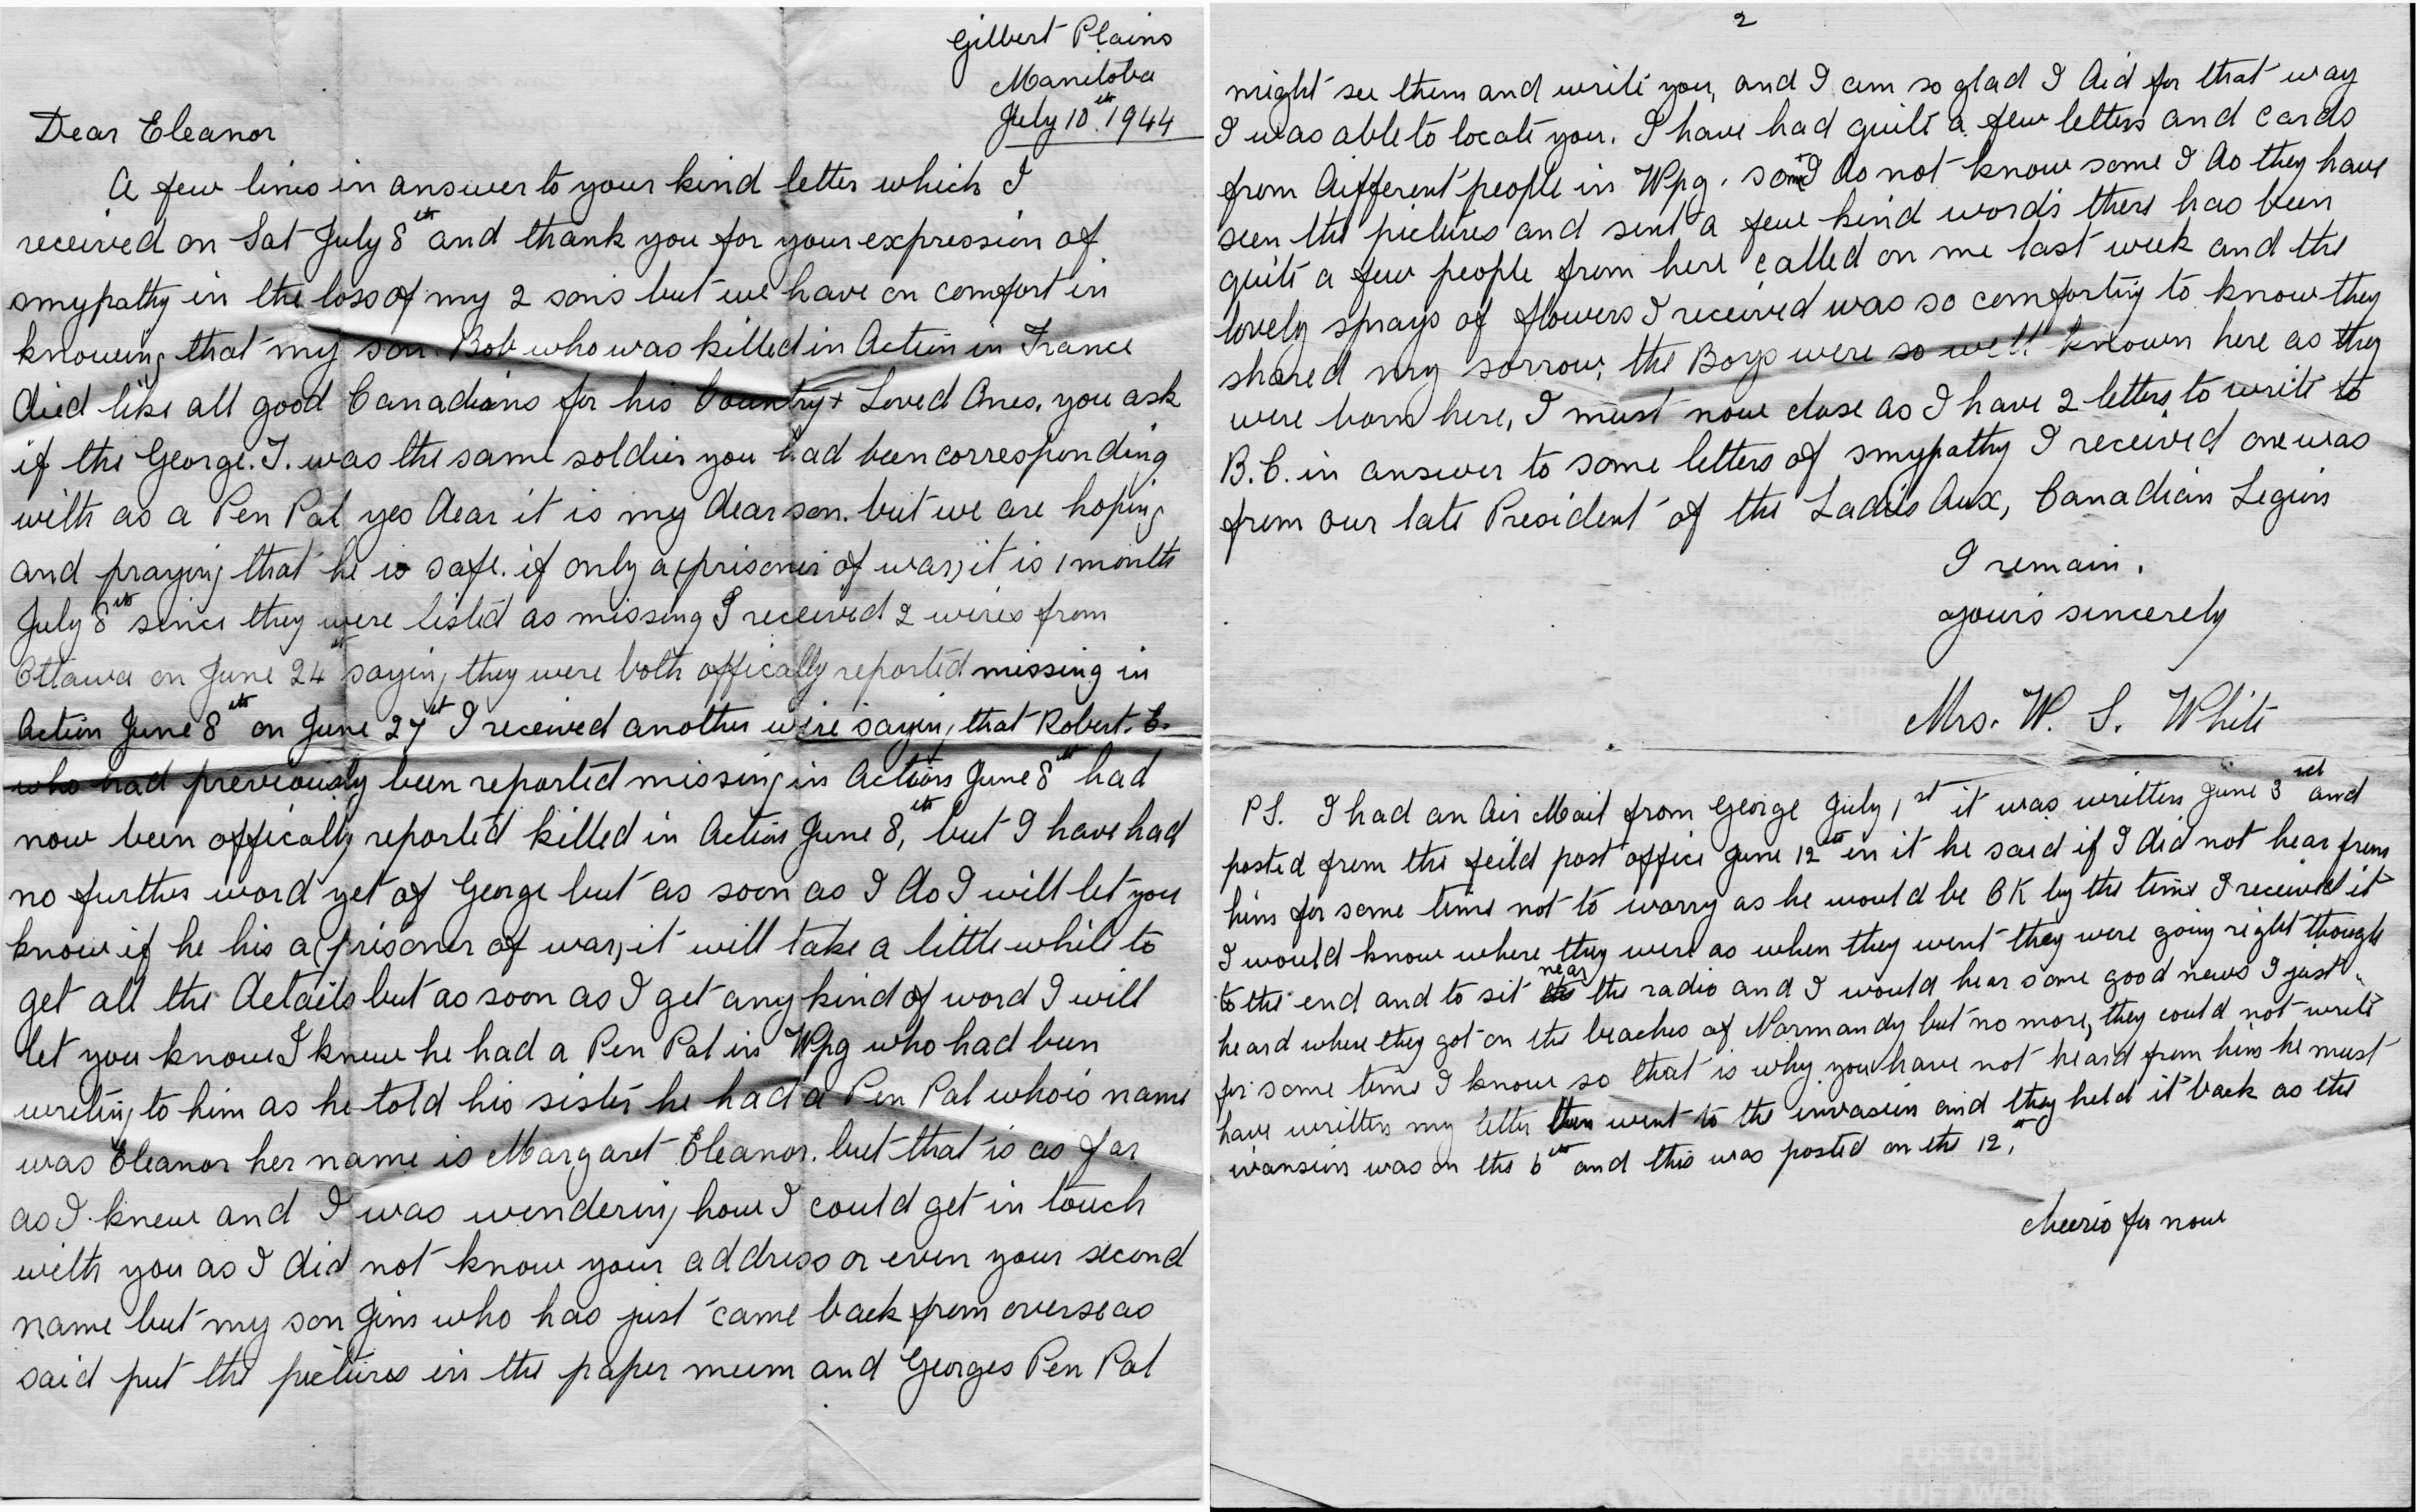 Gilbert Plains
Manitoba
July 10th 1944
Dear Eleanor
A few lines in answer to your kind letter which I
received on Sat July 8th and thank you for your expression of
smypathy in the loss of my 2 sons but we have on comfort in
knowing that my son Bob who was killed in Action in France
died like all good Canadians for his Country + Loved Ones, you ask
if the George. J. was the same soldier you had been corresponding
with as a Pen Pal yes dear it is my dear son. but we are hoping
and praying that he is safe. if only a (prisoner of war) it is 1 month
July 8th since they were listed as missing I received 2 wires from
Ottawa on June 24th saying they were both offically reported missing in
Action June 8th on June 27th I received another wire saying that Robert. E.
who had previously been reported missing in Action June 8th had
now been offically reported killed in Action June 8th, but I have had
no further word yet of George but as soon as I do I will let you
know if he his a (prisoner of war) it will take a little while to
get all the details but as soon as I get any kind of word I will
let you know I knew he had a Pen Pal in Wpg who had been
writing to him as he told his sister he had a Pen Pal who's name
was Eleanor her name is Margaret Eleanor. but that is as far
as I knew and I was wondering how I could get in touch
with you as I did not know your address or even your second
name but my son Jim who has just came back from overseas
said put the pictures in the paper mum and Georges Pen Pal
2
might see them and write you, and I am so glad I did for that way
I was able to locate you. I have had quite a few letters and cards
from different people in Wpg. some I do not know some I do they have
seen the pictures and sent a few kind words there has been
quite a few people from here called on me last week and the
lovely sprays of flowers I received was so comforting to know they
shared my sorrow, the Boys were so well known here as they
were born here, I must now close as I have 2 letters to write to
B.C. in answer to some letters of smypathy I received one was
from our late President of the Ladies Aux, Canadian Legion
I remain.
yours sincerely
Mrs. W. S. White
PS. I had an Air Mail from George July 1st it was written June 3rd and
posted from the feild post office June 12th in it he said if I did not hear from
him for some time not to worry as he would be OK by the time I received it
I would know where they were as when they went they were going right though
to the end and to sit near the radio and I would hear some good news I just
heard where they got on the beaches of Normandy but no more, they could not write
for some time I know so that is why you have not heard from him he must
have written my letter then went to the invasion and they held it back as the
ivansion was on the 6th and this was posted on the 12th
cheerio for now